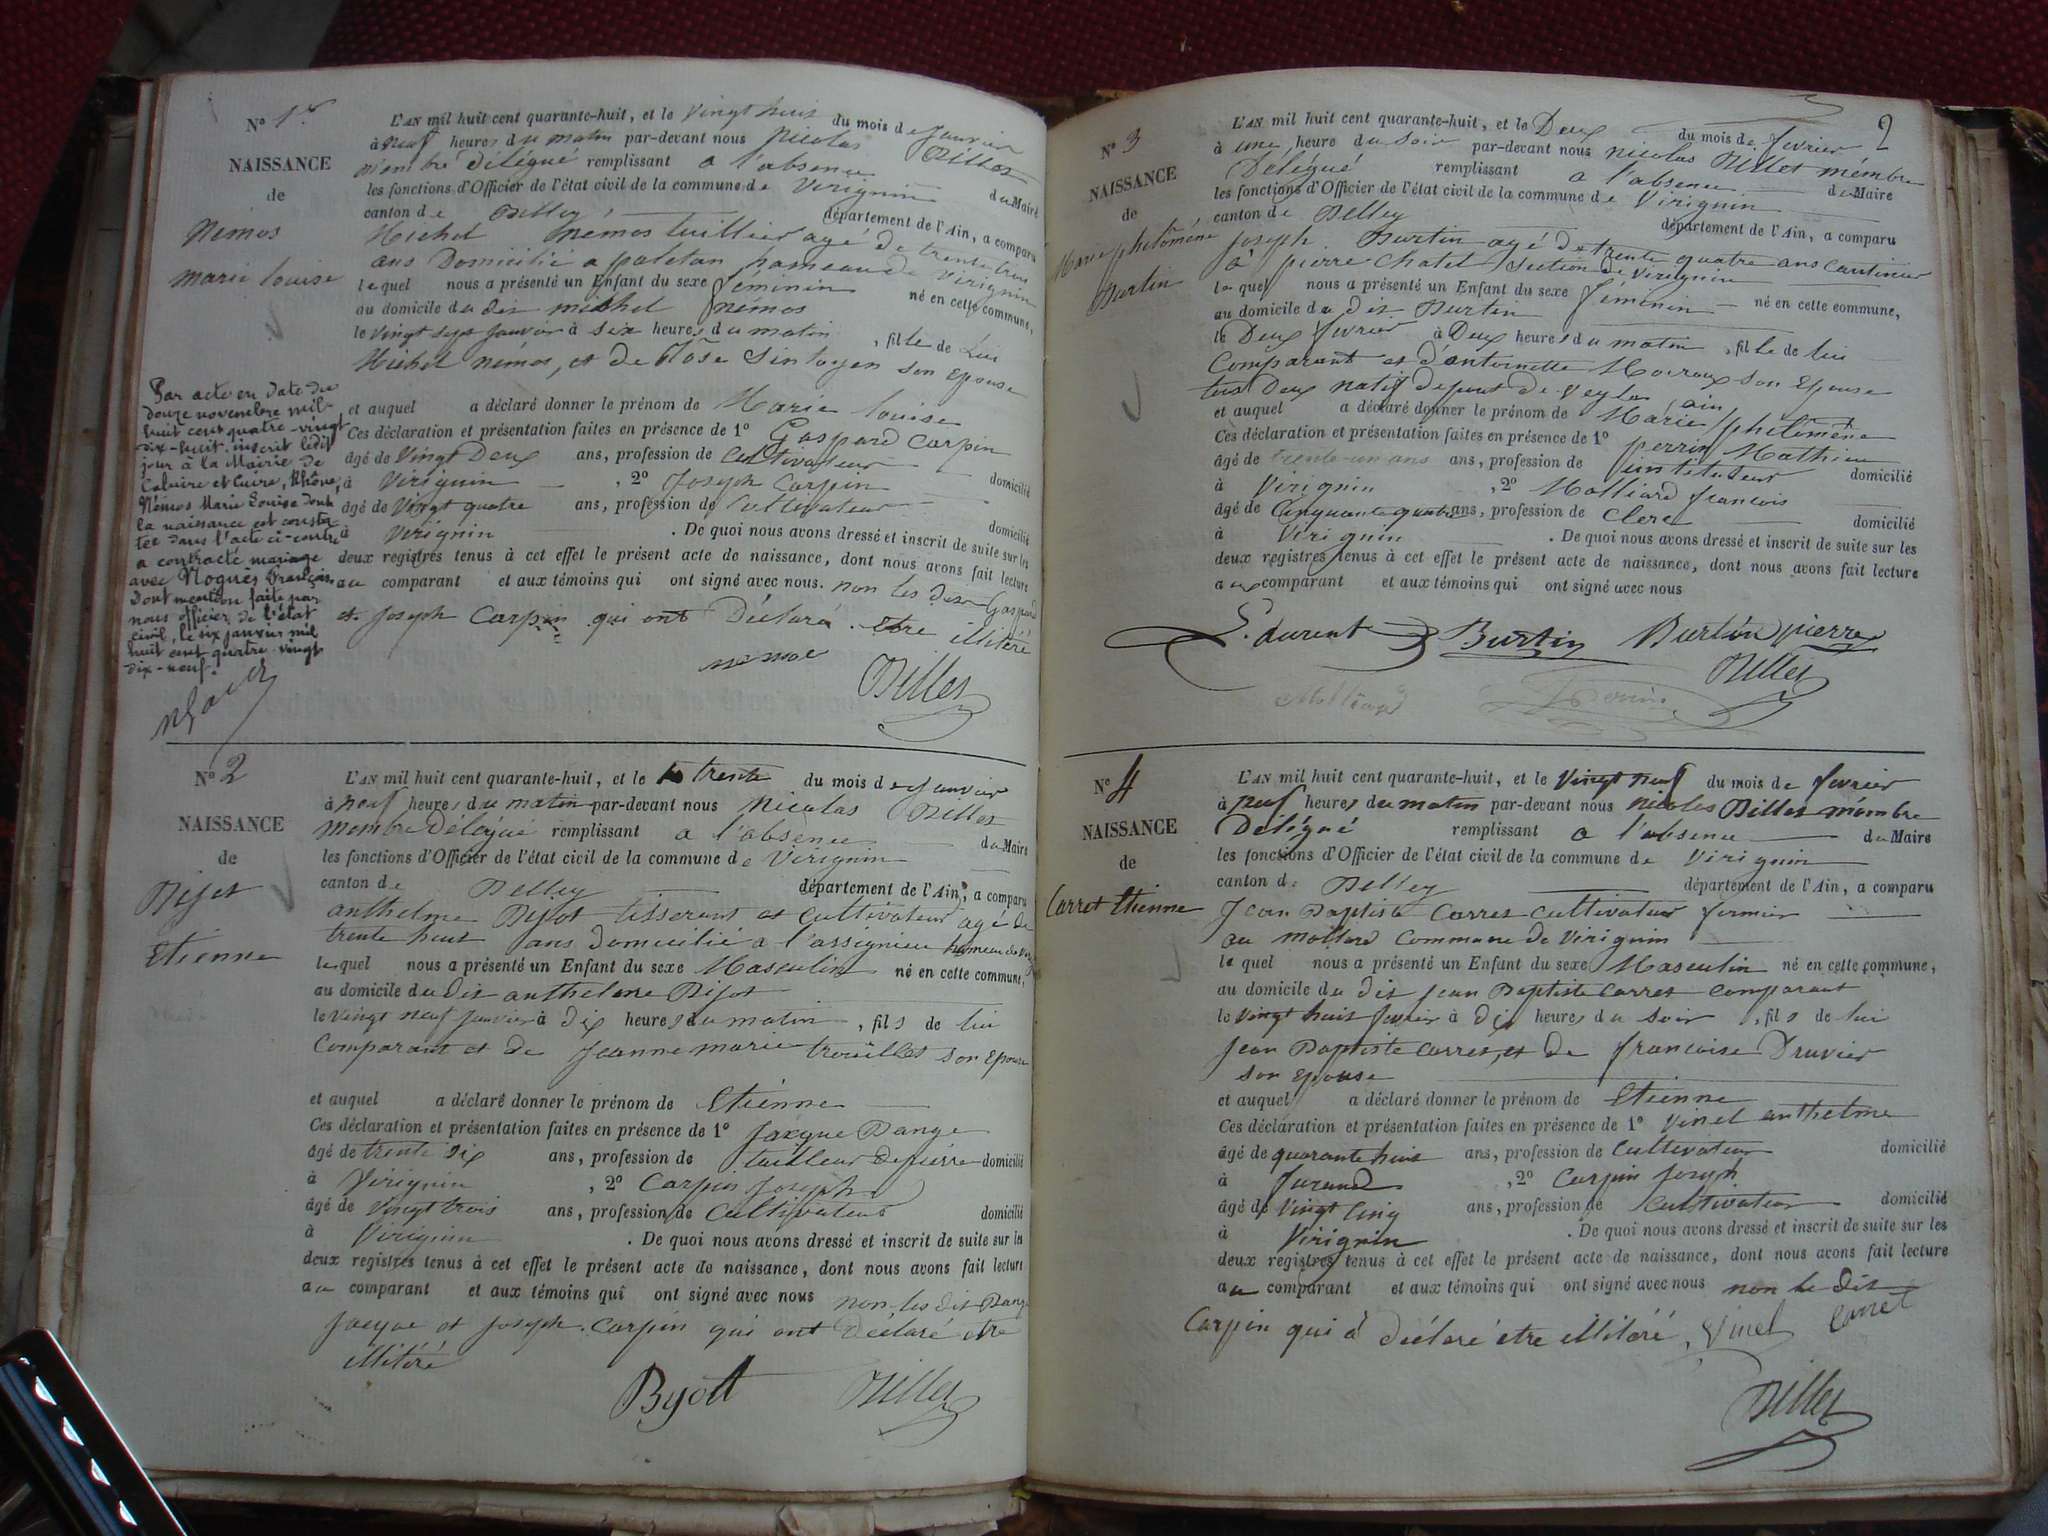 N° 1er
NAISSANCE
de
Nemos
marie louise
L'AN mil huit cent quarante-huit, et le vingt huit du mois de janvier
à neuf heures du matin par-devant nous Nicolas Billet
membre délégué remplissant a l'absence du Maire
les fonctions d'Officier de l'état civil de la commune de Virignin
canton de Belley département de l'Ain, a comparu
Michel Nemos tuillier agé de trente trois
ans Domicilié a hameau de Virignin
lequel nous a présenté un Enfant du sexe féminin né en cette commune,
au domicile du dit michel némos
le vingt sept janvier à six heures du matin, fille de lui
Michel némos, et de son epouse
et auquel a déclaré donner le prénom de Marie louise
Ces déclaration et présentation faites en présence de 1° Gaspard Carpin
âgé de vingt Deux ans, profession de cultivateur domicilié
à Virignin, 2° Joseph Carpin
âgé de vingt quatre ans, profession de cultivateur domicilié
à Virignin. De quoi nous avons dressé et inscrit de suite sur les
deux registres tenus à cet effet le présent acte de naissance, dont nous avons fait lecture
au comparant et aux témoins qui ont signé avec nous. non les dits Gaspard
et Joseph Carpin qui ont Déclaré être illitéré
Billet
Par acte en date du
douze novembre mil-
huit cent quatre-vingt
dix-huit inscrit ledit
jour à la Mairie de
Caluire et Cuire, Rhône,
Némos Marie Louise dont
la naissance est consta-
tée dans l'acte ci-contre
a contracté mariage
avec Noguès François
Dont mention faite par
nous officier de l'état
civil, le six janvier mil
huit cent quatre-vingt
dix-neuf.
N° 2
NAISSANCE
de
Bijot
Etienne
L'AN mil huit cent quarante-huit, et le trente du mois de janvier
à neuf heures du matin par-devant nous Nicolas Billet
membre Délégué remplissant a l'absence du Maire
les fonctions d'Officier de l'état civil de la commune de Virignin
canton de Belley département de l'Ain, a comparu
anthelme Bijot tisserant et cultivateur agé de
trente huit ans domicilié a l'assignieu hameau de
lequel nous a présenté un Enfant du sexe Masculin né en cette commune,
au domicile du dit anthelme Bijot
le vingt neuf janvier à dix heures du matin, fils de lui
Comparant et de Jeanne marie trouillet son Epouse
et auquel a déclaré donner le prénom de Etienne
Ces déclaration et présentation faites en présence de 1° Jacque Dange
âgé de trente six ans, profession de tailleur de pierre domicilié
à Virignin, 2° Carpin Joseph
âgé de vingt trois ans, profession de Cultivateur domicilié
à Virignin. De quoi nous avons dressé et inscrit de suite sur les
deux registres tenus à cet effet le présent acte de naissance, dont nous avons fait lecture
au comparant et aux témoins qui ont signé avec nous non les dit Dange
Jacque et Joseph Carpin qui ont Déclaré etre
illitéré
Byott Billet
2
N° 3
NAISSANCE
de
Marie philoméne
Burtin
L'AN mil huit cent quarante-huit, et le Deux du mois de fevrier
à une heure du soir par-devant nous nicolas Billet mémbre
Délégué remplissant a l'absence du Maire
les fonctions d'Officier de l'état civil de la commune de Virignin
canton de Belley département de l'Ain, a comparu
Joseph Burtin agé de trente quatre ans cantinier
à pierre chatel section de Virignin
lequel nous a présenté un Enfant du sexe féminin né en cette commune,
au domicile du dit Burtin
le Deux fevrier à Deux heures du matin, fille de lui
Comparant et d'antoinette Moiroux son Epouse
tus Deux natif de pont de veyle ain
et auquel a déclaré donner le prénom de Marie philoméne
Ces déclaration et présentation faites en présence de 1° perrin Mathieu
âgé de trente-un ans ans, profession de instituteur domicilié
à Virignin, 2° Molliard francois
âgé de Cinquante quatre ans, profession de Clerc domicilié
à Virignin. De quoi nous avons dressé et inscrit de suite sur les
deux registres tenus à cet effet le présent acte de naissance, dont nous avons fait lecture
aux comparant et aux témoins qui ont signé avec nous
L. durent Burtin Burtin pierre
Molliard Perrin Billet
N° 4
NAISSANCE
de
Carret Etienne
L'AN mil huit cent quarante-huit, et le Vingt neuf du mois de fevrier
à neuf heures du matin par-devant nous nicolas Billet mémbre
Délégué remplissant a l'absence du Maire
les fonctions d'Officier de l'état civil de la commune de Virignin
canton de Belley département de l'Ain, a comparu
Jean Baptiste Carret cultivateur fermier
au mollard Commune de Virignin
le quel nous a présenté un Enfant du sexe Masculin né en cette commune,
au domicile du dit jean Baptiste Carret Comparant
le vingt huit fevrier à dix heures du soir, fils de lui
Jean Baptiste Carret, et de francoise Druvier
son epouse
et auquel a déclaré donner le prénom de Etienne
Ces déclaration et présentation faites en présence de 1° Vinel anthelme
âgé de quarante huit ans, profession de Cultivateur domicilié
à, 2° Carpin Joseph
âgé de Vingt Cinq ans, profession de cultivateur domicilié
à Virignin. De quoi nous avons dressé et inscrit de suite sur les
deux registres tenus à cet effet le présent acte de naissance, dont nous avons fait lecture
au comparant et aux témoins qui ont signé avec nous non le dit
Carpin qui à déclaré etre illitéré. Vinel Carret
Billet